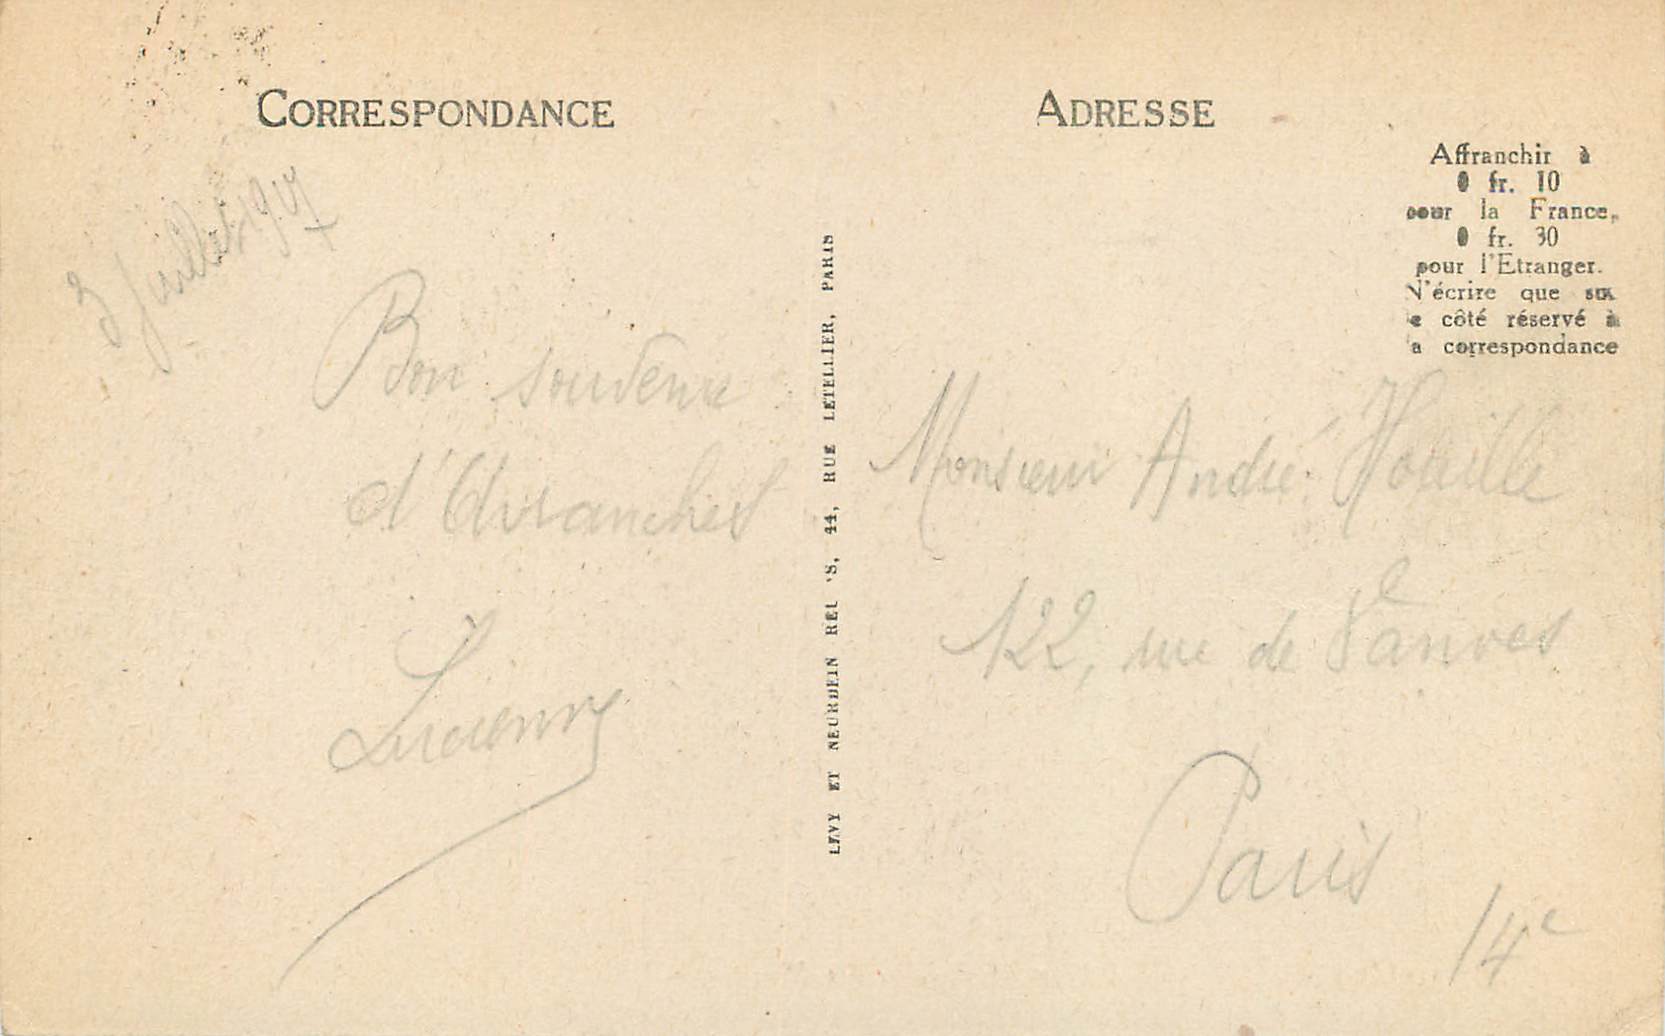 CORRESPONDANCE
3 Juillet
Bon souvenir
d'Avranches
LEVY ET NEURDEIN RÉUNIS, 44, RUE LETELLIER, PARIS
ADRESSE
Affranchir à
0 fr. 10
pour la France,
0 fr. 30
pour l'Etranger.
N'écrire que sur
le côté réservé à
la correspondance
Monsieur André
122, rue de Vanves
Paris
14e